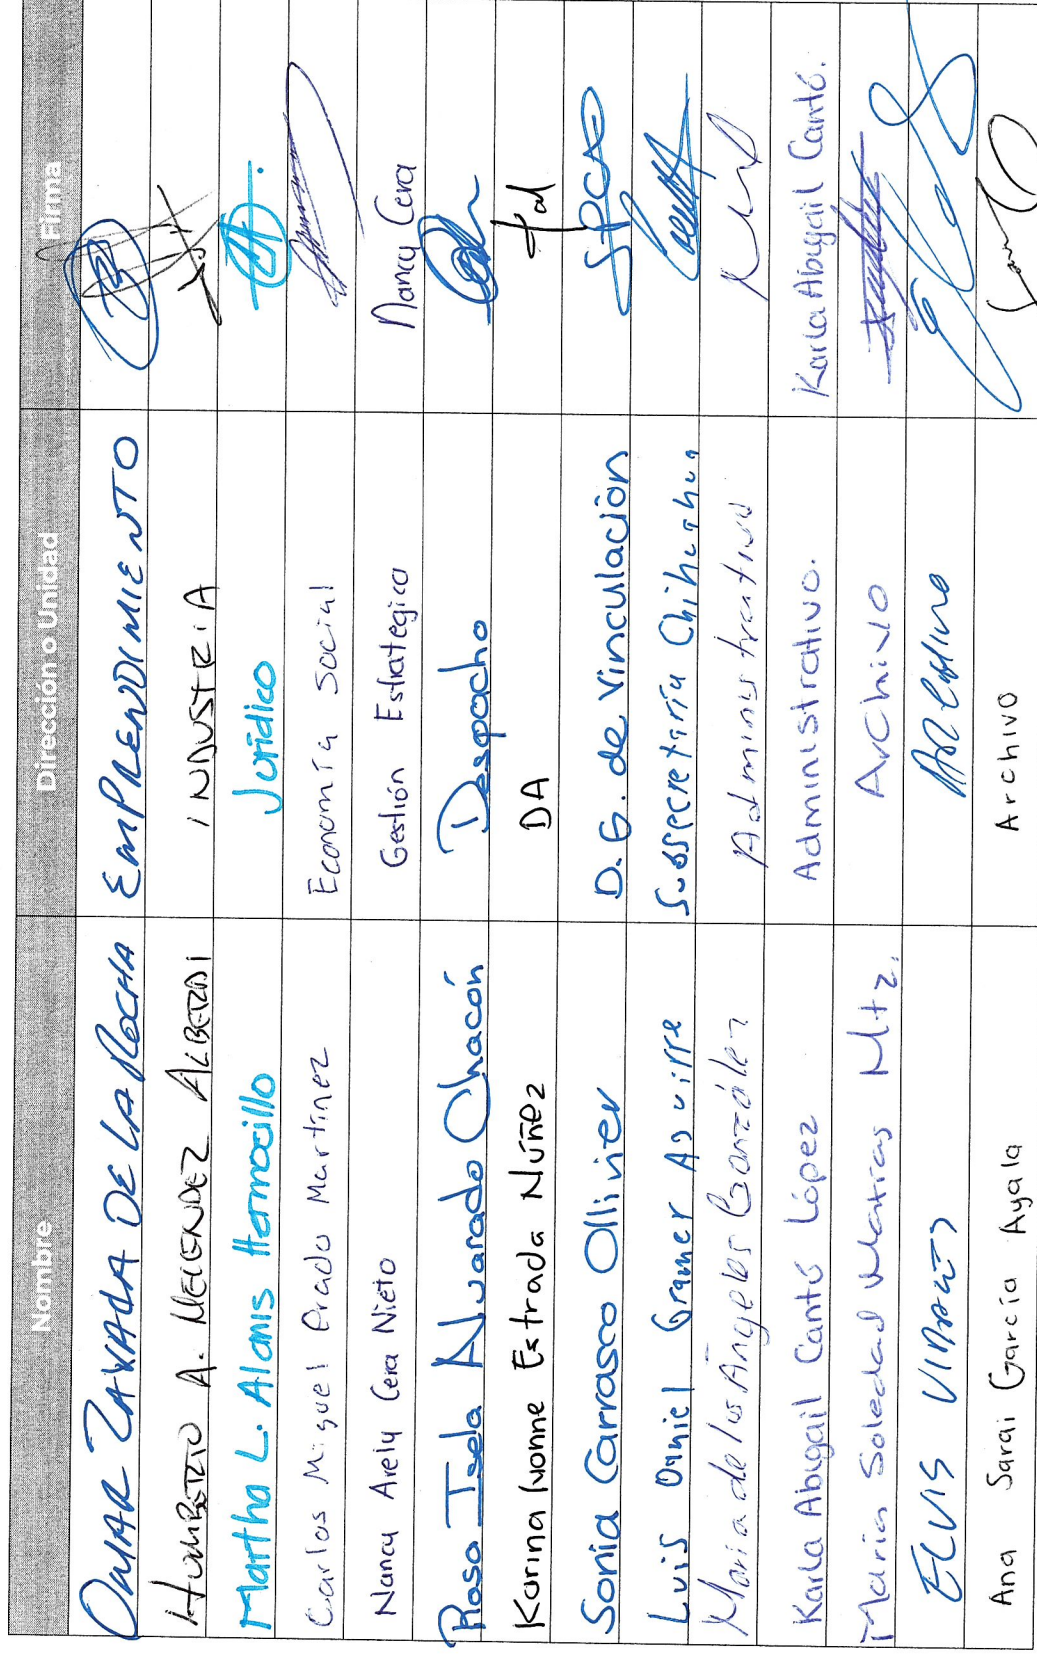 Nombre Dirección o Unidad Firma
OMAR ZAVALA DE LA ROCHA EMPRENDIMIENTO
HUMBERTO A. MELENDEZ ALBERDI INDUSTRIA
Martha L. Alanis Hermocillo Jurídico
Carlos Miguel Prado Martínez Economía Social
Nancy Arely Cera Nieto Gestión Estrategica Nancy Cera
Rosa Isela Alvarado Chacón Despacho
Karina Ivonne Estrada Núñez DA
Sonia Carrasco Ollivier D.G. de Vinculación
Luis Daniel Gramer Aguirre Subsecretaría Chihuahua
Maria de los Ángeles González Administrativo
Karla Abigail Cantú López Administrativo. Karla Abigail Cantú.
Maria Soledad Mtz. Archivo
ELVIS
Ana Sarai García Ayala Archivo